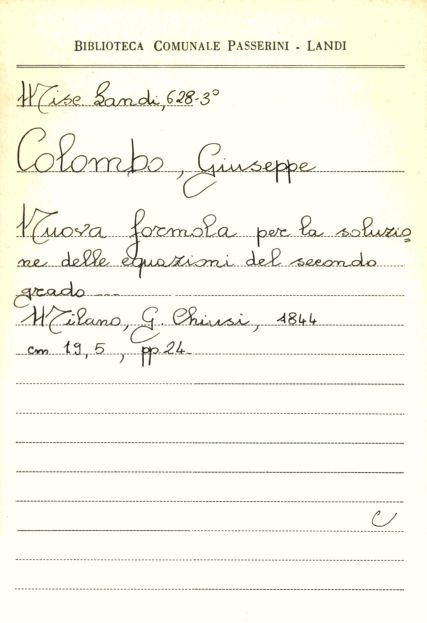 BIBLIOTECA COMUNALE PASSERINI - LANDI
Misc. Landi, 628-3°
Colombo, Giuseppe
Nuova formola per la soluzio=
ne delle equazioni del secondo
grado ...
Milano, G. Chiusi, 1844
cm 19,5, pp. 24.
C